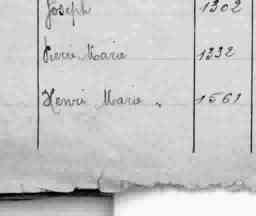 Joseph 1302
Pierre Marie 1332
Henri Marie. 1561